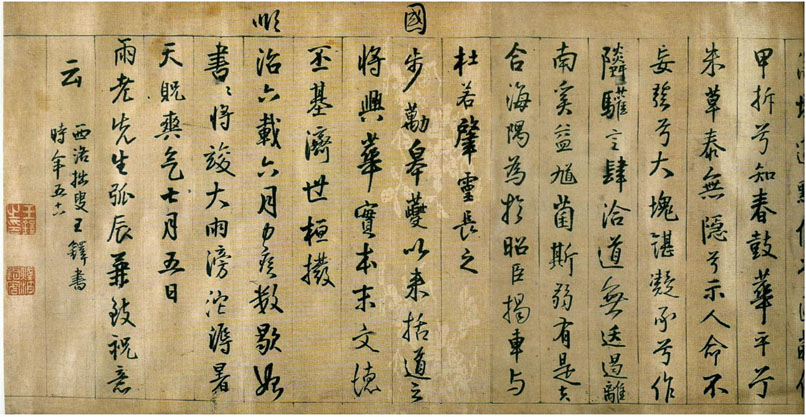 甲拆兮知春鼓華平兮
朱草泰無隱兮示人命不
妄發兮大塊諶凝承兮作
隣騅言肆洽道無迋遏離
南奚益尵菌斯弱有是夫
合海隅為於昭臣揭車与
杜若肈靈長之
國步勤皋夔以來括道之
將興華實本末文德
丕基濟世桓撥
順治六載六月力疾数歇始
書書將竣大雨滂沱溽暑
天貺爽气七月五日
雨老先生弧辰兼致祝意
云
西洛拙叟王鐸書
時年五十六